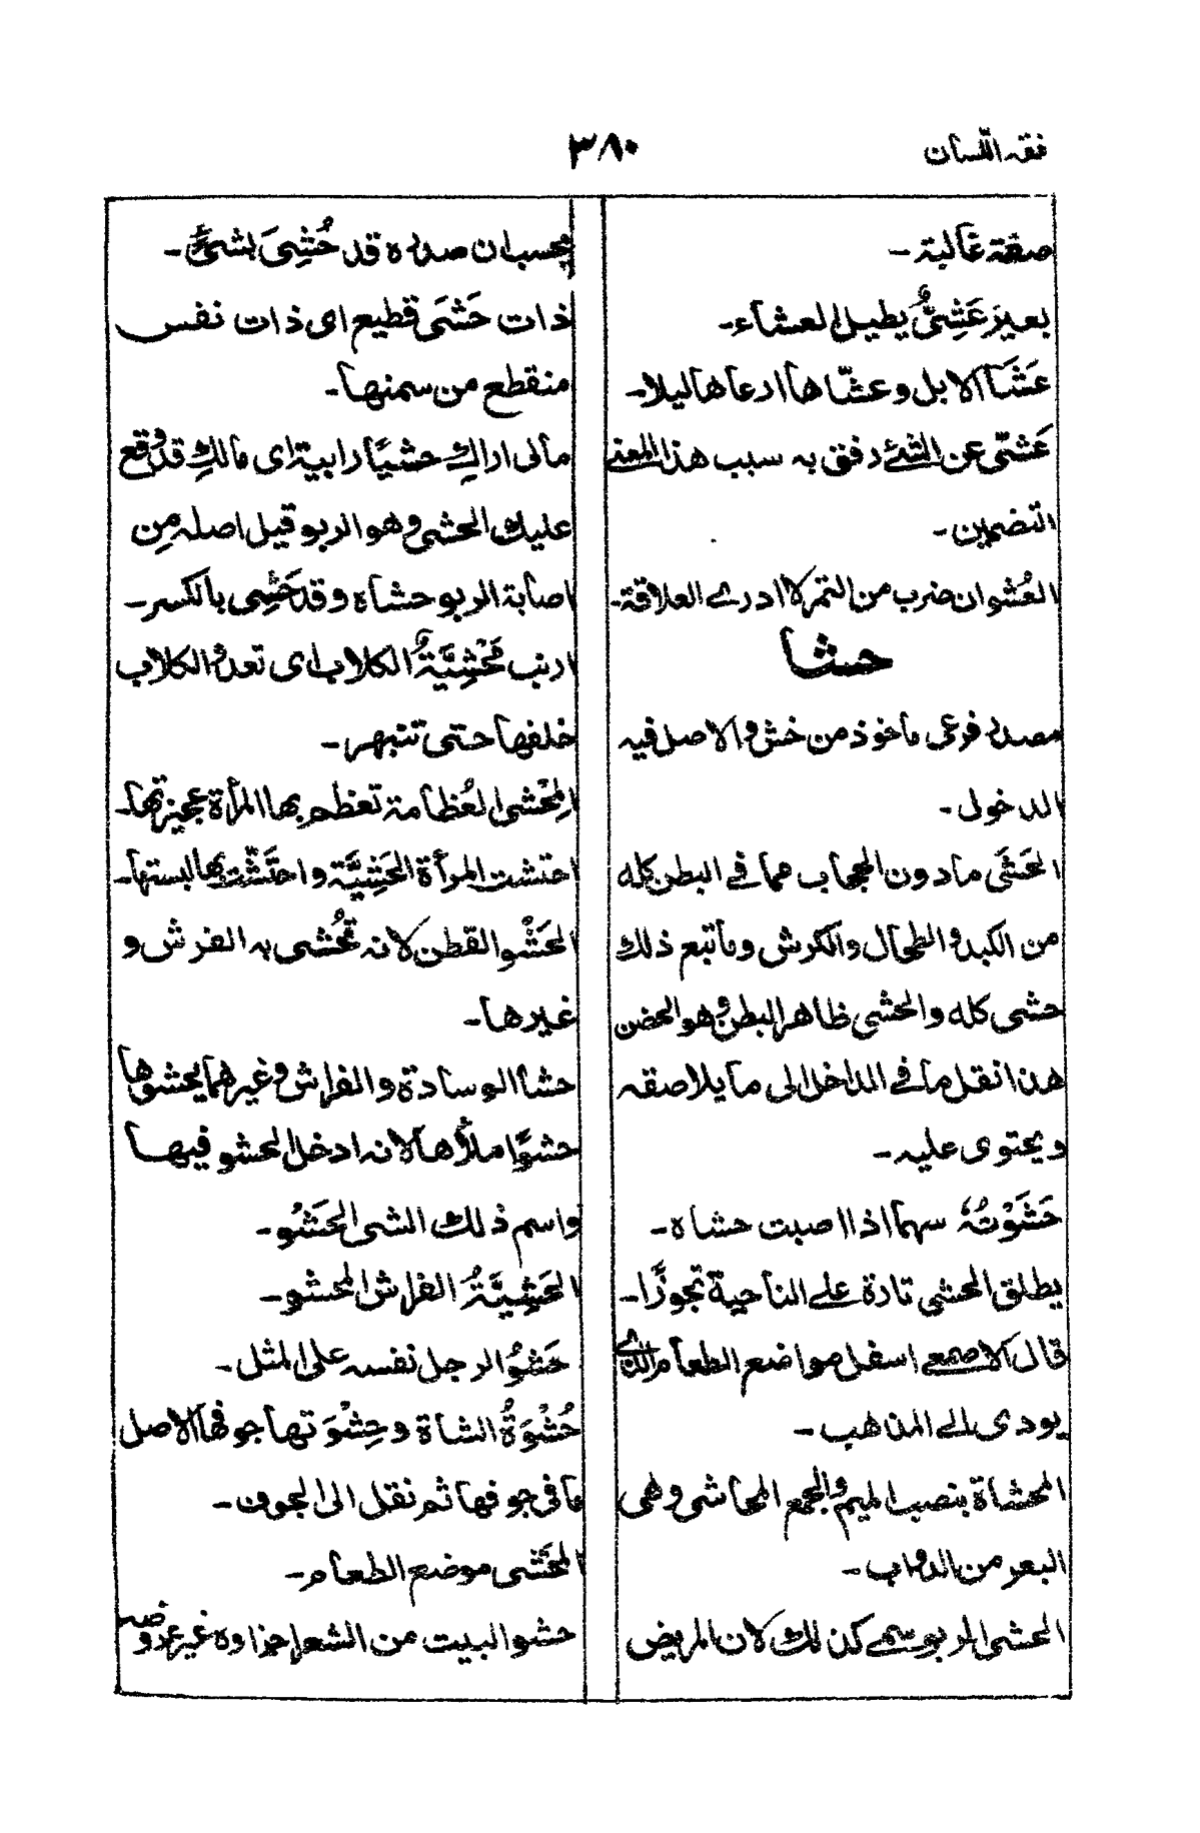 فقه اللسان
٣٨٠
صفة غالبة -
بعير عَشِىٌّ يطيل العشاء -
عَشَا الابل وعشّاها ادعاها ليلا -
عَشّى عن الشئ رفق به سبب هذا المعنى
التضمين -
العُشوان ضرب من التمر لا ادرى العلاقة -
حشا
مصدر فرعى ماخوذ من خش والاصل فيه
الدخول -
الحَشَى مادون الحجاب مما فى البطن كله
من الكبد والطحال والكرش وماتبع ذلك
حشى كله والحشى ظاهر البطن وهو الحضن
هذا نقل ما فى المداخل الى ما يلاصقه
ويحتوى عليه -
حَشَوْتُهٗ سهما اذا اصبت حشاه -
يطلق الحشى تارة على الناحية تجوزًا -
قال الاصمعى اسفل مواضع الطعام الذى
يودى الى المذهب -
المحشاة بنصب الميم والجمع المحاشى وهى
البعر من الدواب -
الحشى الربو سمى كذلك لان المريض
يحسب ان صدره قد حُشِىَ بشىءٍ -
ذات حَشَى قطيع اى ذات نفس
منقطع من سمنها -
مالى اراكِ حشيًا رابية اى مالكِ قد وقع
عليك الحشى وهو الربو قيل اصله مِن
اصابة الربو حشاه وقد حَشِى بالكسر -
ارنب مُحْشِيَّةُ الكلاب اى تعدو الكلاب
خلفها حتى تنبهر -
المِحْشى العُظامة تعظم بها المرأة عجيزتها -
احتشت المرأة الحَشِيَّة واحتَشَّت بها لبستها -
الحَشْو القطن لانه تُحْشى به الفرش و
غيرها -
حشا الوسادة والفراش وغيرهما يحشوها
حشوًا ملأها لانه ادخل الحشو فيها
واسم ذلك الشى الحَشْو -
الحَشِيَّةُ الفراش المحشو -
حَشْوُ الرجل نفسه على المثل -
حُشْوَةُ الشاة وحِشْوَتها جوفها الاصل
مافى جوفها ثم نقل الى الجوف -
المَحْشَى موضع الطعام -
حشو البيت من الشعر اجزاوه غير عروضه